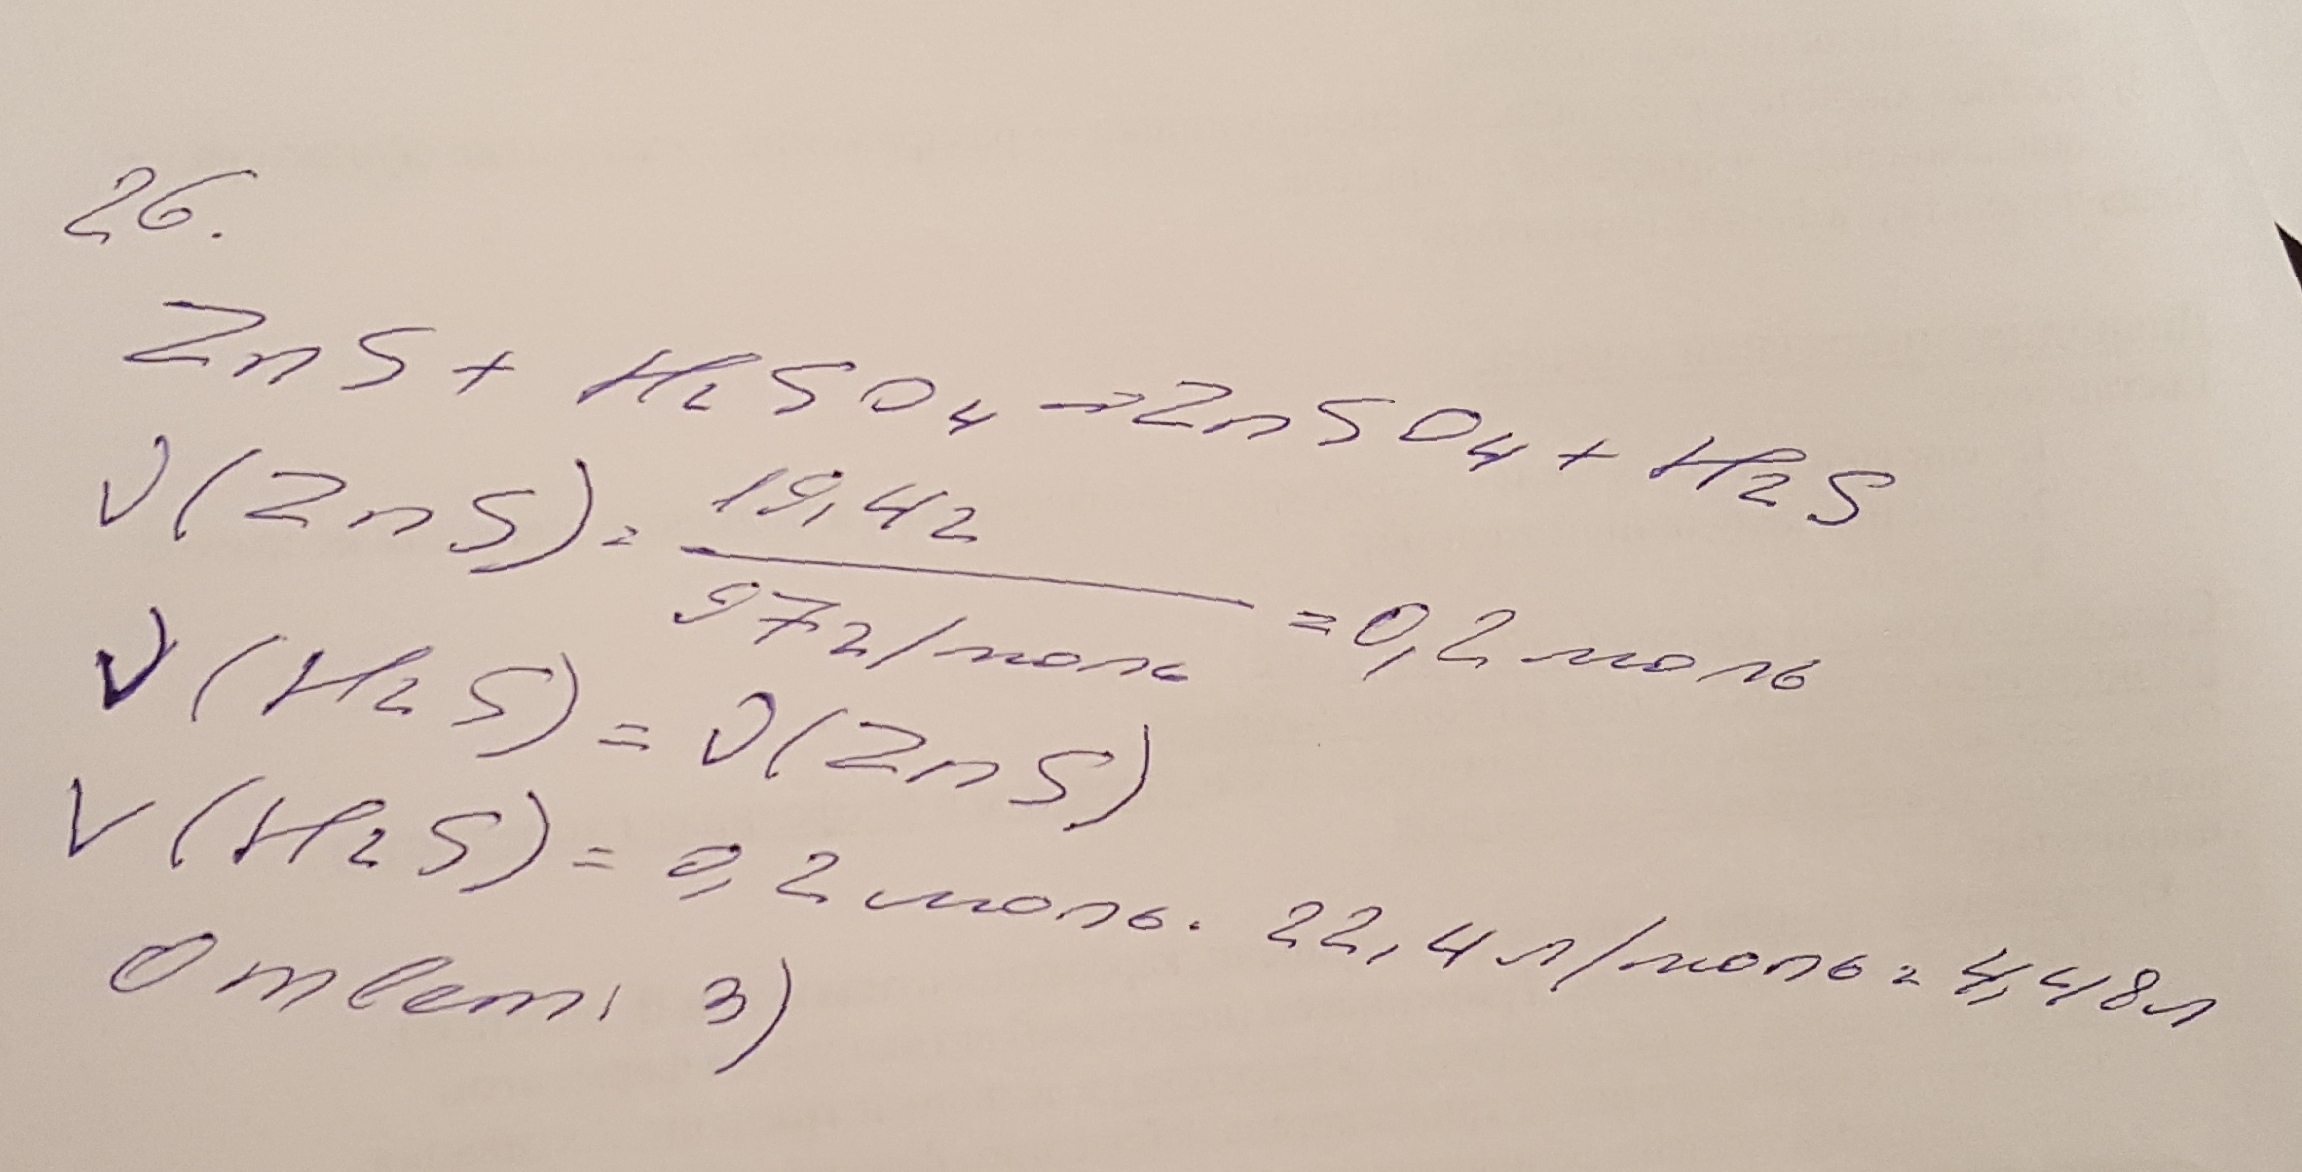 26.
ZnS + H₂SO₄ → ZnSO₄ + H₂S
ν(ZnS) = 19,4г / 97г/моль = 0,2 моль
ν(H₂S) = ν(ZnS)
V(H₂S) = 0,2 моль · 22,4 л/моль = 4,48л
Ответ: 3)